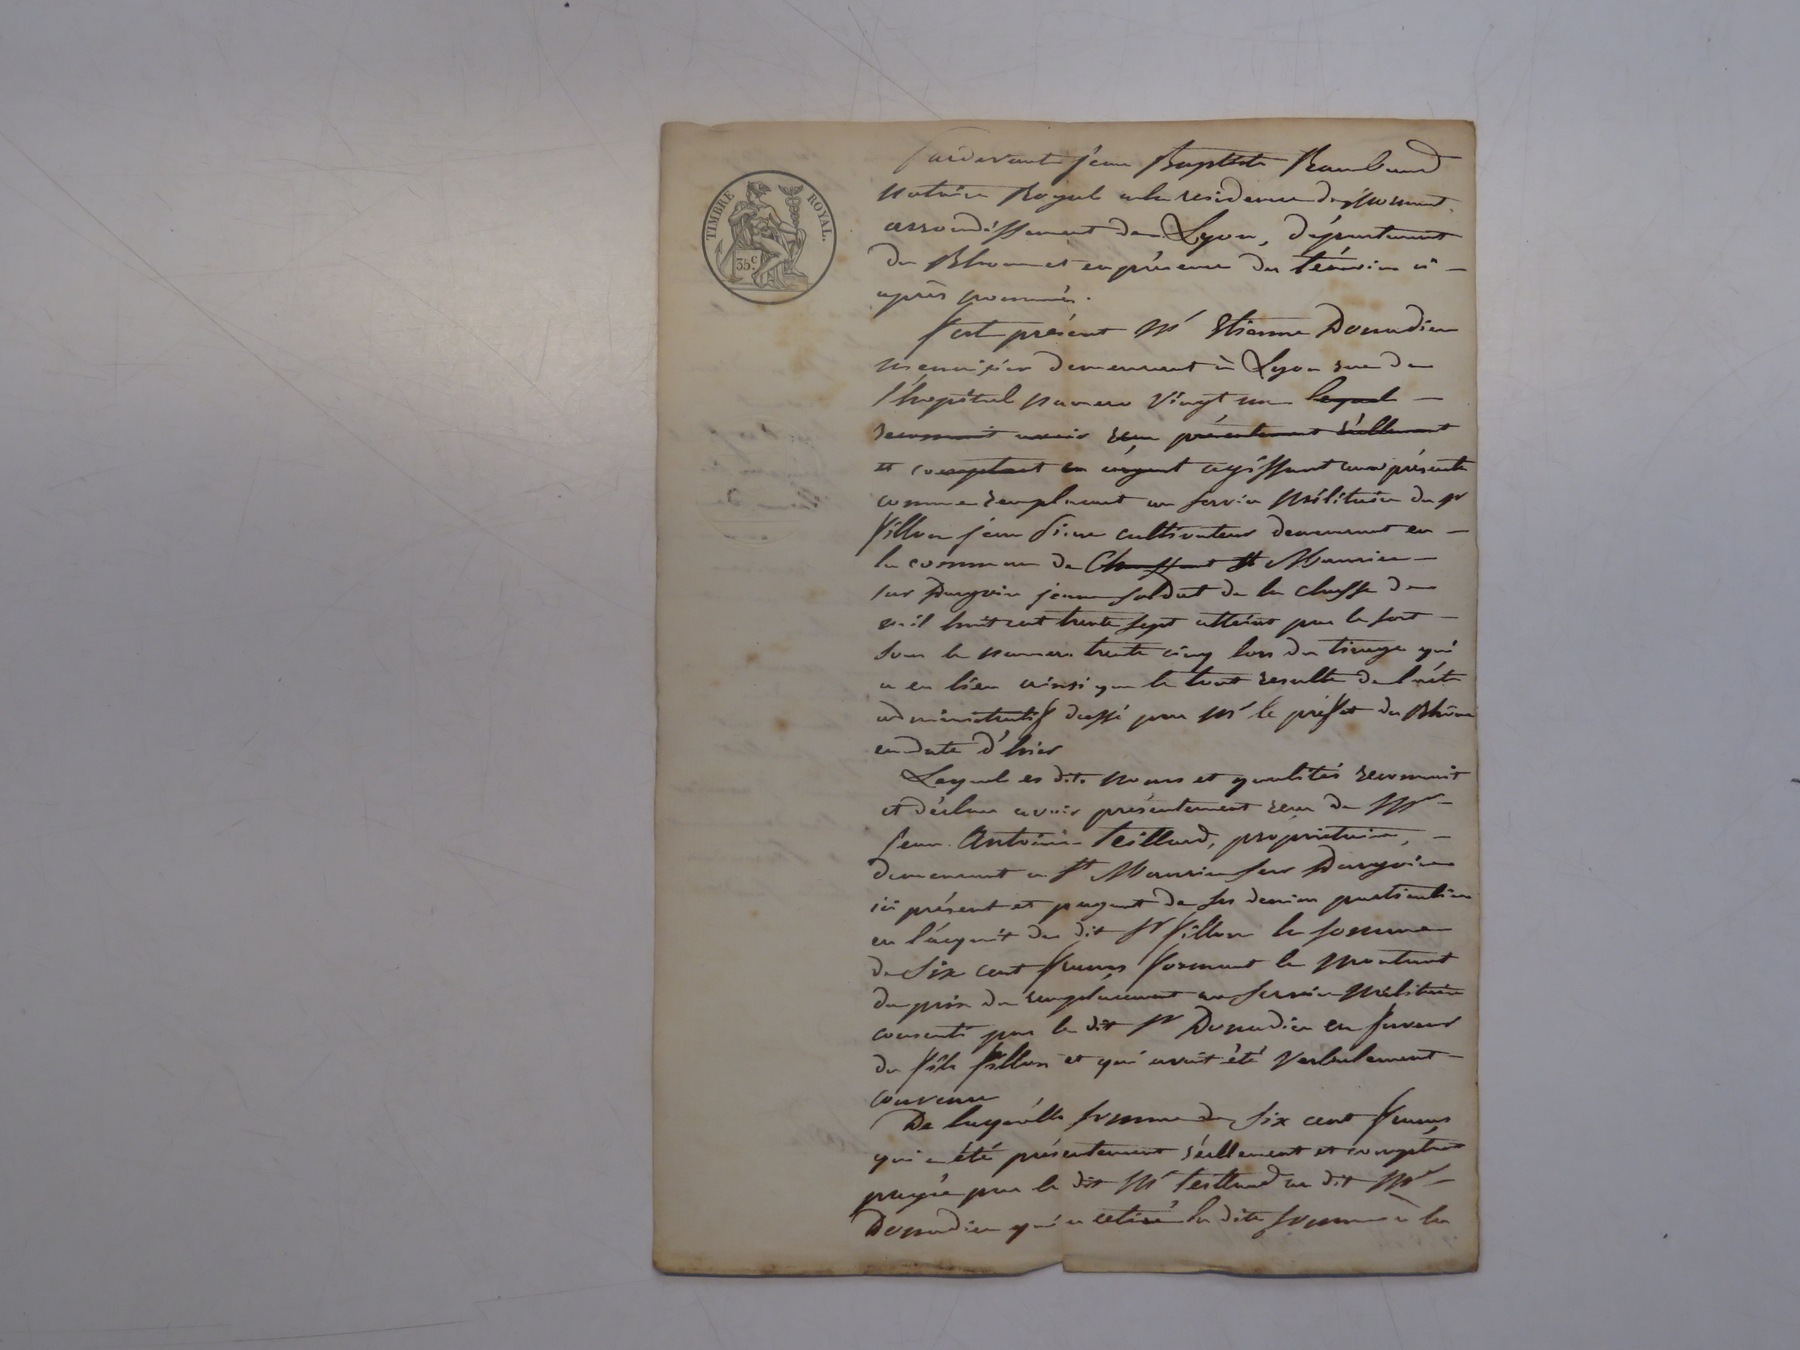 TIMBRE ROYAL.
35 c.
Pardevant jean Baptiste Rambaud
notaire Royal à la residence de Mornant,
arrondissement de Lyon, département
du Rhone et en présence des témoins ci-
après nommés.
fut présent Mr Etienne Donadieu
menuisier demeurant à Lyon rue de
l'hopital numero Vingt un lequel
reconnait avoir reçu présentement réellement
et comptant en argent agissant aux présentes
comme remplacant au service Militaire du sr
fillon jean Pierre cultivateur demeurant en
la commune de Chaussant St Maurice
sur Dargoire jeune soldat de la classe de
mil huit cent trente sept atteint par le sort
sous le numero trente cinq lors du tirage qui
a eu lieu ainsi que le tout resulte de l'acte
administratif dressé par Mr le préfet du Rhône
en date d'hier
Lequel es dits noms et qualités reconnait
et déclare avoir présentement reçu de Mr
jean Antoine Teillard, propriétaire,
demeurant à St Maurice sur Dargoire
ici présent et payant de ses deniers particuliers
en l'acquit du dit sr fillon la somme
de Six cent francs formant le montant
du prix du remplacement au service Militaire
consenti par le dit sr Donadieu en faveur
du fils fillon et qui avait été verbalement
convenu
De laquelle somme de six cent francs
qui a été présentement réellement et comptant
payée par le dit Mr Teillard au dit Mr
Donadieu qui a retiré la dite somme à la